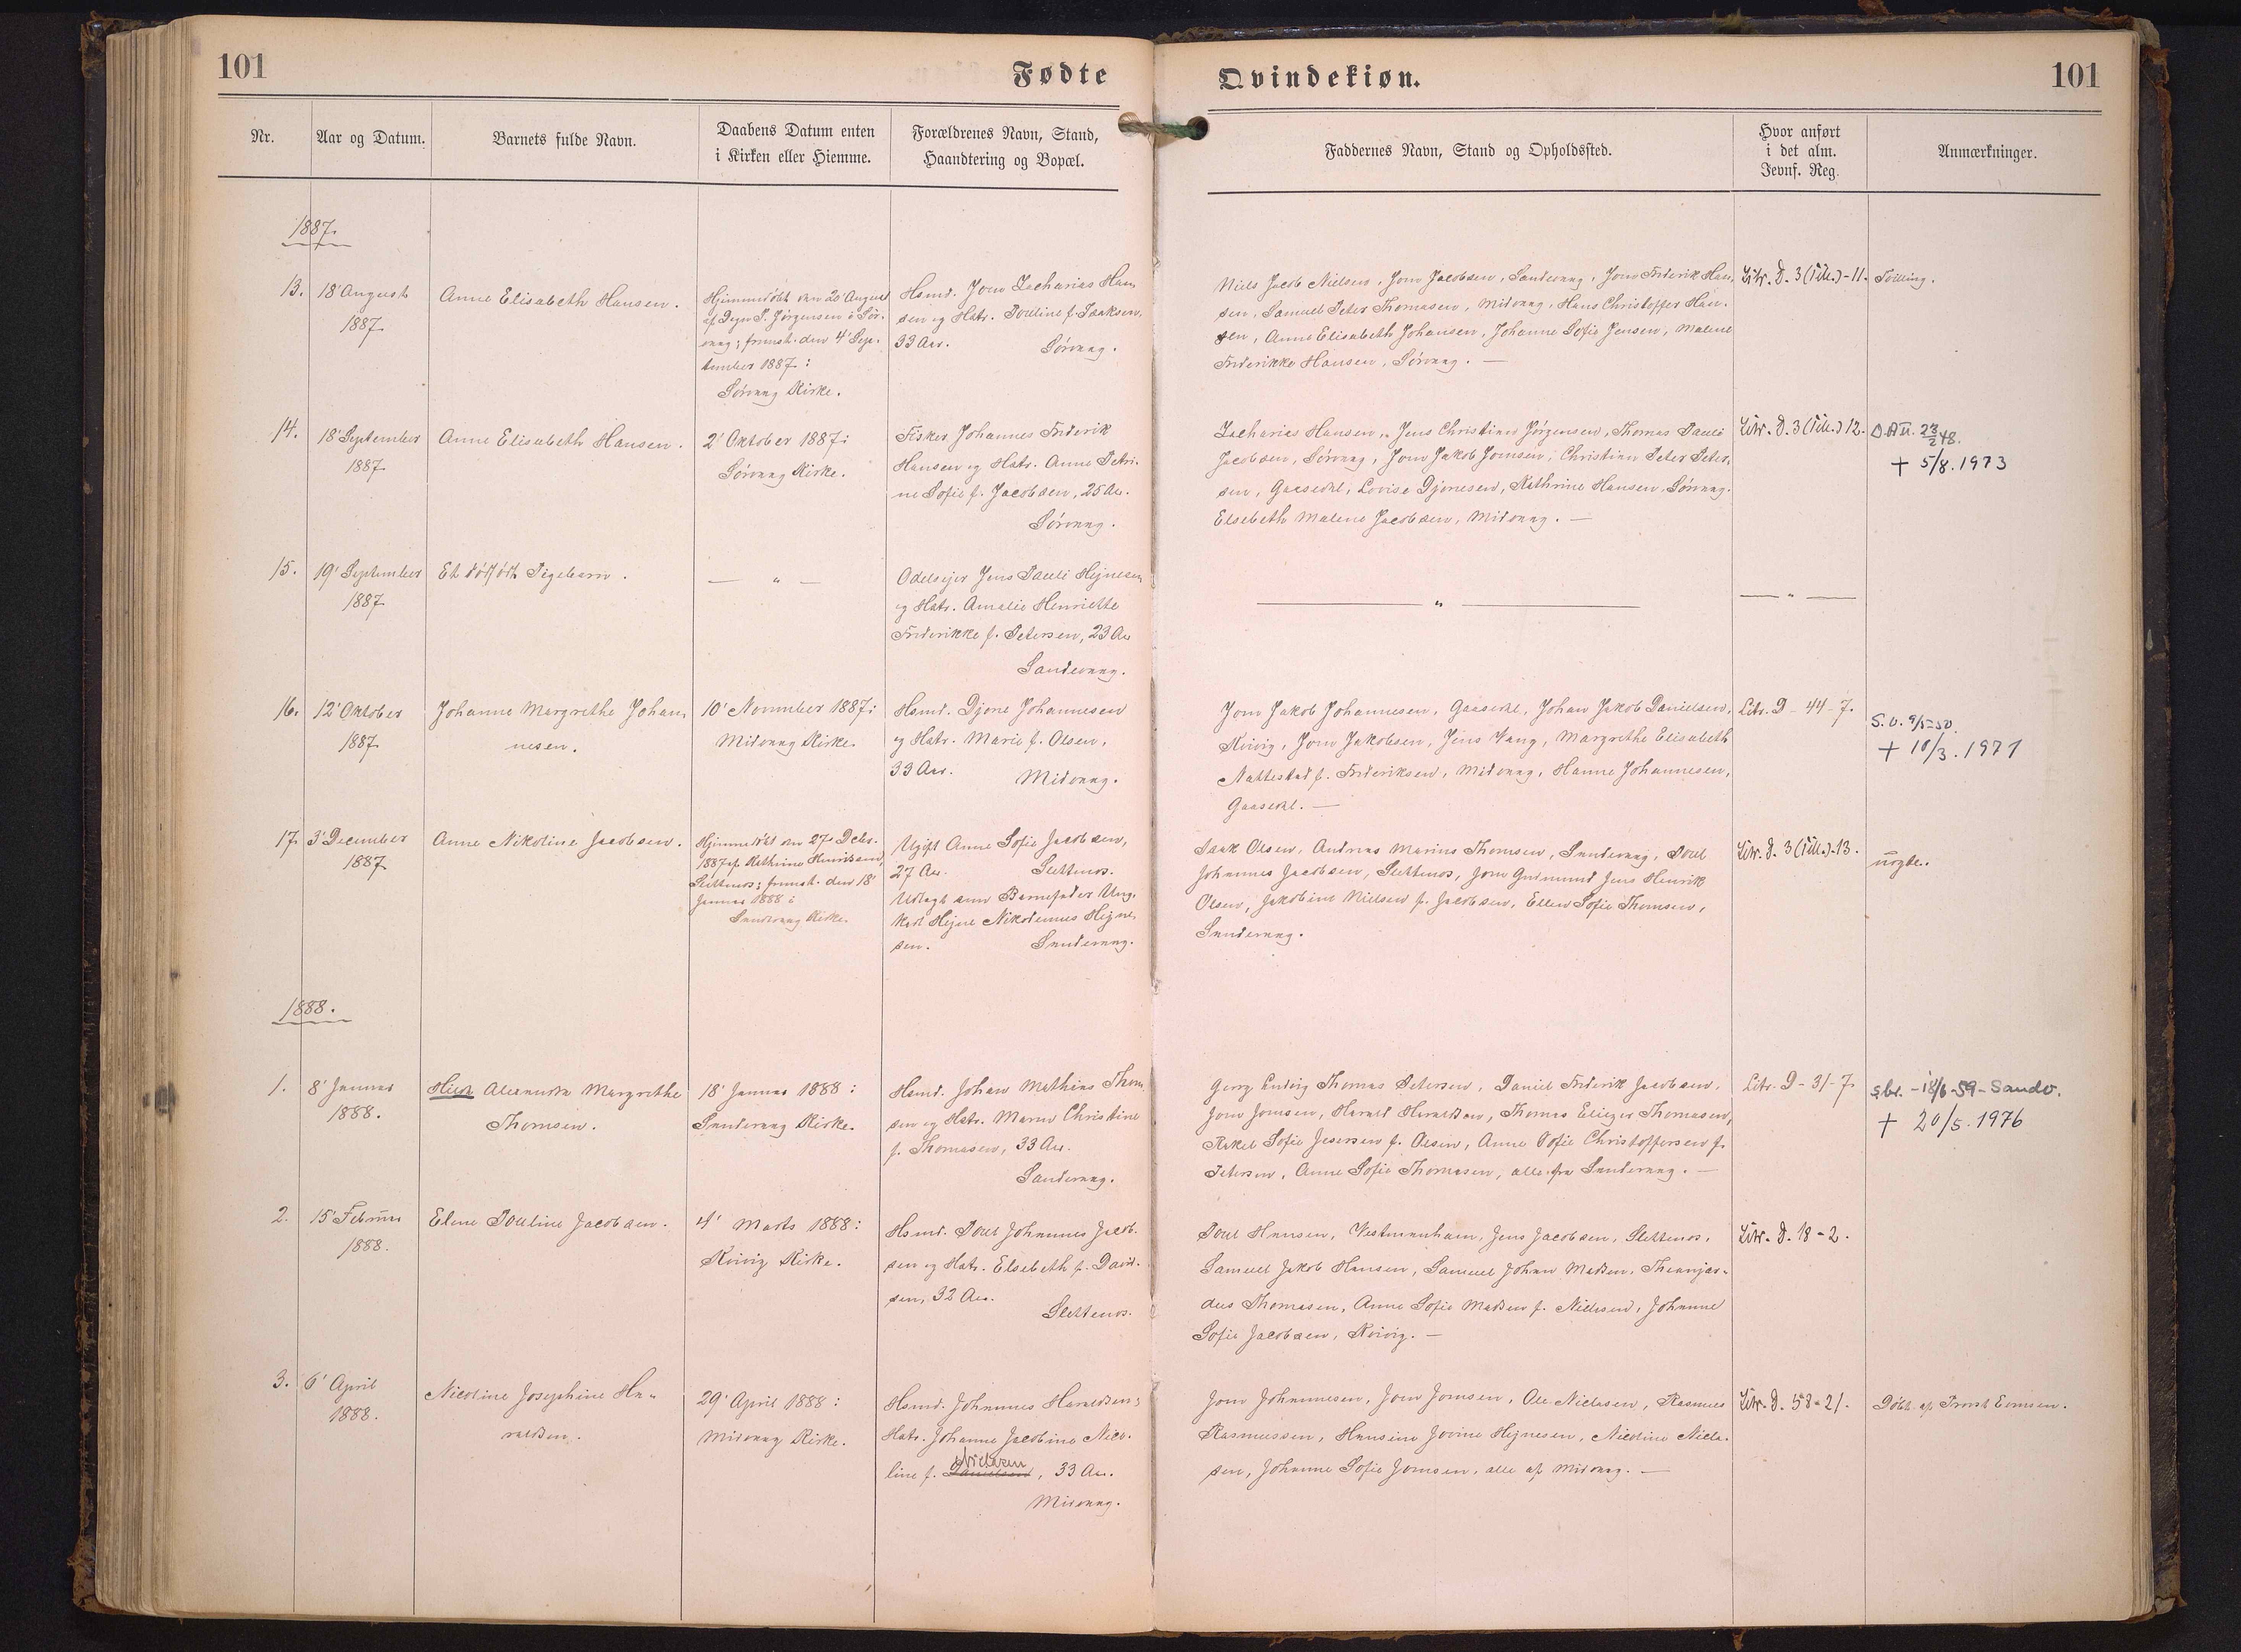 101
Fødte
Qvindekiøn.
101
Nr.
Aar og Datum.
Barnets fulde Navn.
Daabens Datum enten
i Kirken eller Hiemme.
Forældrenes Navn, Stand,
Haandtering og Bopæl.
Faddernes Navn, Stand og Opholdssted.
Hvor anført
i det alm.
Jevnf. Reg.
Anmærkninger.
1887.
13.
18' August
1887
Anne Elisabeth Hansen.
Hjemmedøbt den 20' August
af Degn P. Jørgensen i Sør-
vaag; fremst. den 4' Sep-
tember 1887:
Sørvaag Kirke.
Hsmd. Joen Zacharias Han-
sen og Hstr. Pouline f. Isaksen,
33 Aar.
Sørvaag.
Niels Jacob Nielsen, Joen Jacobsen, Sandevaag, Joen Frederik Han-
sen, Samuel Peter Thomasen, Midvaag, Hans Christoffer Han-
sen, Anne Elisabeth Johansen, Johanne Sofie Jensen, Malene
Frederikke Hansen, Sørvaag. —
Litr. D. 3 (Till.) - 11.
Tvilling.
14.
18' September
1887
Anne Elisabeth Hansen.
2' Oktober 1887:
Sørvaag Kirke.
Fisker Johannes Frederik
Hansen og Hstr. Anne Petri-
ne Sofie f. Jacobsen, 25 Aar.
Sørvaag.
Zacharias Hansen, Jens Christian Jørgensen, Thomas Pauli
Jacobsen, Sørvaag, Joen Jakob Joensen, Christian Peter Peter-
sen, Gaasedal, Lovise Djonesen, Kathrine Hansen, Sørvaag.
Elsebeth Malene Jacobsen, Midvaag. —
Litr. D. 3 (Till.) 12.
D.Att. 23/2 48.
+ 5/8. 1973
15.
19' September
1887
Et dødfødt Pigebarn.
— " —
Odelsejer Jens Pauli Hejnesen
og Hstr. Amalie Henriette
Frederikke f. Petersen, 23 Aar
Sandevaag.
— " —
— " —
16.
12' Oktober
1887
Johanne Margrethe Johan-
nesen.
10' November 1887:
Midvaag Kirke.
Hsmd. Djone Johannesen
og Hstr. Marie f. Olsen,
33 Aar.
Midvaag.
Joen Jakob Johannesen, Gaasedal, Johan Jakob Danielsen,
Kvivig, Joen Jakobsen, Jens Vang, Margrethe Elisabeth
Nattestad f. Frederiksen, Midvaag, Hanne Johannesen,
Gaasedal. —
Litr. D - 44 - 7.
+ 10/3. 1971
17
3' December
1887
Anne Nikoline Jacobsen.
Hjemmedøbt den 27. Decbr.
1887 af Kathrine Henriksen,
Slettenæs; fremst. den 18'
Januar 1888 i
Sandevaag Kirke.
Ugift Anne Sofie Jacobsen,
27 Aar.
Slettenæs.
Udlagt som Barnefader Ung-
karl Hejne Nikodemus Hejne-
sen.
Sandevaag.
Isak Olsen, Andreas Marius Thomsen, Sandevaag, Poul
Johannes Jacobsen, Slettenæs, Joen Gudmund Jens Henrik
Olsen, Jakobine Nielsen f. Jacobsen, Ellen Sofie Thomsen,
Sandevaag.
Litr. D. 3 (Till.) - 13.
uægte.
1888.
1.
8' Januar
1888.
Alexandra Margrethe
Thomsen.
18' Januar 1888:
Sandevaag Kirke.
Hsmd. Johan Mathias Thom-
sen og Hstr. Maren Christine
f. Thomasen, 33 Aar.
Sandevaag.
Georg Ludvig Thomas Petersen, Daniel Frederik Jacobsen,
Joen Joensen, Harald Haraldsen, Thomas Eliezer Thomasen,
Rakel Sofie Jespersen f. Olsen, Anne Sofie Christoffersen f.
Petersen, Anne Sofie Thomasen, alle fra Sandevaag. —
Litr. D - 31 - 7
s.br. - 18/6 - 59 - Sandv.
+ 20/5. 1976
2.
15' Februar
1888.
Elene Pouline Jacobsen.
4' Marts 1888:
Kvivig Kirke.
Hsmd. Poul Johannes Jacob-
sen og Hstr. Elsebeth f. David-
sen, 32 Aar.
Slettenæs.
Poul Hansen, Vestmanhavn, Jens Jacobsen, Slettenæs,
Samuel Jakob Hansen, Samuel Johan Madsen,
Thomasen, Anne Sofie Madsen f. Nielsen, Johanne
Sofie Jacobsen, Kvivig. —
Litr. D. 18 - 2.
3.
6' April
1888.
Nicoline Josephine Ha-
raldsen.
29' April 1888:
Midvaag Kirke.
Hsmd. Johannes Haraldsen;
Hstr. Johanne Jacobine Nico-
line f. Danielsen, 33 Aar.
Nielsen
Midvaag.
Joen Johannesen, Joen Joensen, Ole Niclasen, Rasmus
Rasmussen, Hansine Jovine Hejnesen, Nicoline Nicla-
sen, Johanne Sofie Joensen, alle af Midvaag. —
Litr. D. 58 - 21.
Døbt af Provst Evensen.